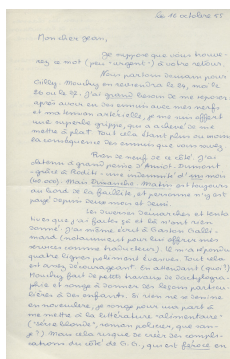 le 16 octobre 55
Mon cher Jean,
Je suppose que vous trouve-
rez ce mot (peu "urgent") à votre retour.
Nous partons demain pour
Gilly. Moudry en reviendra le 29, moi le
30 ou le 31. J'ai grand besoin de me reposer
après avoir eu des ennuis avec mes nerfs
et ma tension artérielle, je me suis offert
une superbe grippe, qui a achevé de me
mettre à plat. Tout cela étant plus ou moins
la conséquence des ennuis que vous savez
Rien de neuf de ce côté. J'ai
obtenu à grand peine d'Amiot-Dumont
une indemnité d'un mois
Mais Dimanche-Matin est toujours
au bord de la faillite, et personne n'y est
payé depuis deux mois et demi.
Les diverses démarches et tenta
tives que j'ai faites çà et là n'ont rien
donné. J'ai même écrit à Gaston Galli-
mard (notamment pour lui offrir mes
services comme traducteur), il m'a répondu
quatre lignes poliment évasives. Tout cela
est assez décourageant. En attendant (quoi?)
Moudry fait de petits travaux de dactylogra-
phie et songe à donner des leçons particu-
lières à des enfants. Si rien ne se dessine
en novembre, je songe pour ma part à
me mettre à la littérature "alimentaire"
("série blonde", roman policier, que sais-
je?) Mais cela risque de créer des compli-
cations du côté de G.G., qui est féroce en